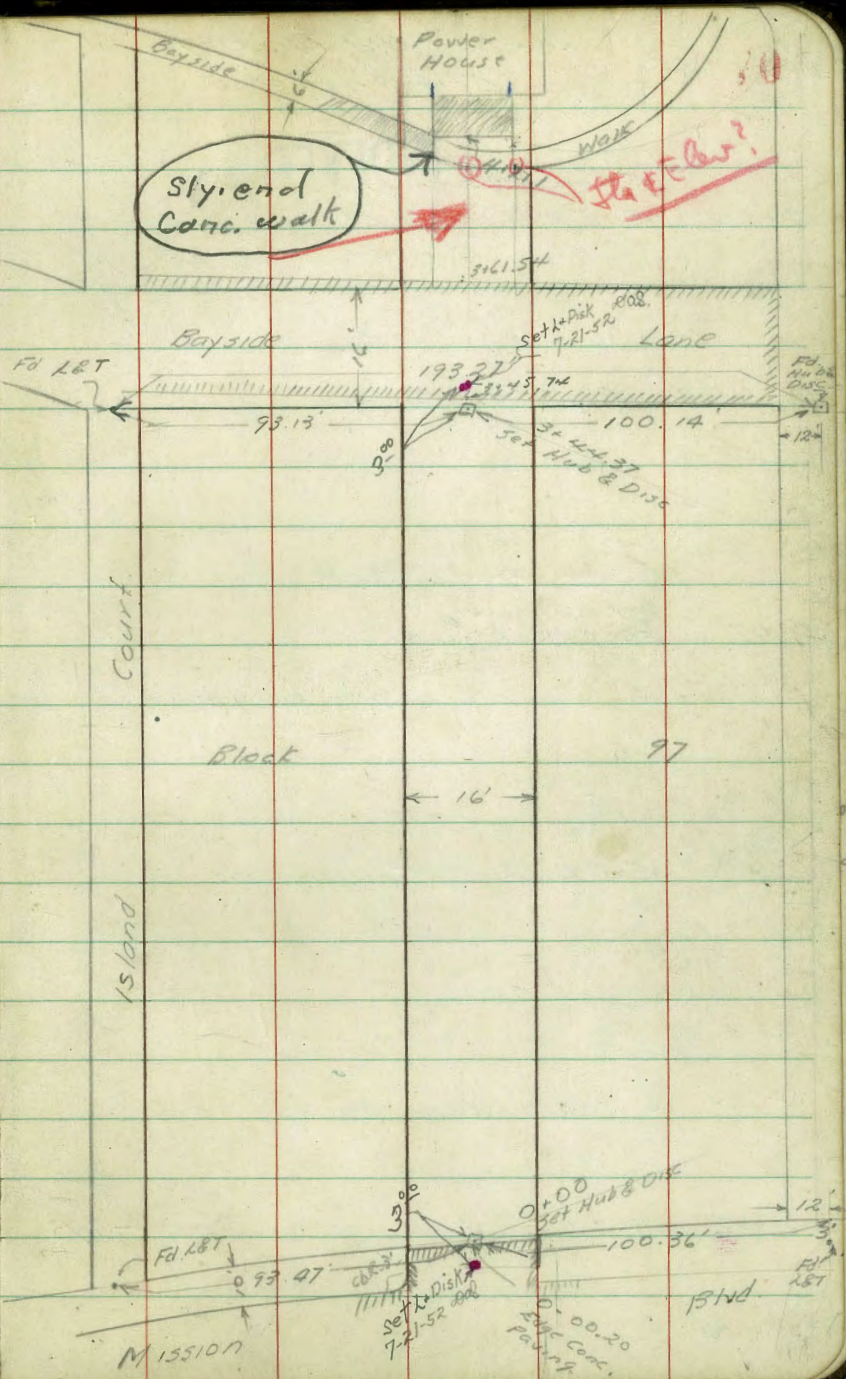 Bayside
6'
Power
House
Walk
Sly. end
Conc. walk
Sta & Elev?
3+61.54
Bayside
16'
Set L+Disk
7-21-52
Lane
Fd L&T
193.27
3+45.74
Fd.
Hub &
Disc
93.13'
100.14'
12'
3.00
3+44.37
Set Hub & Disc
Court
Block
97
16'
Island
3.00
0+00
Set Hub & Disc
12'
Fd. L&T
93.47'
10'
100.36'
Fd
L&T
Set L+Disk
7-21-52
0-00.20
Edge Conc.
Paving
Blvd.
Mission